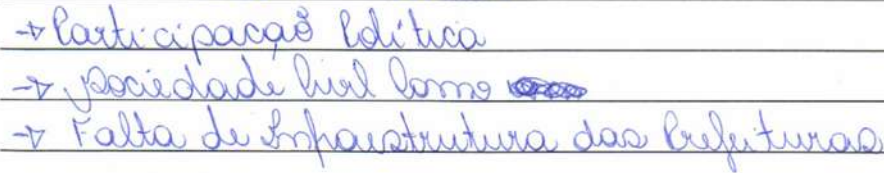 → Participação Política
→ Sociedade Civil Como
→ Falta de Infraestrutura das Prefeituras